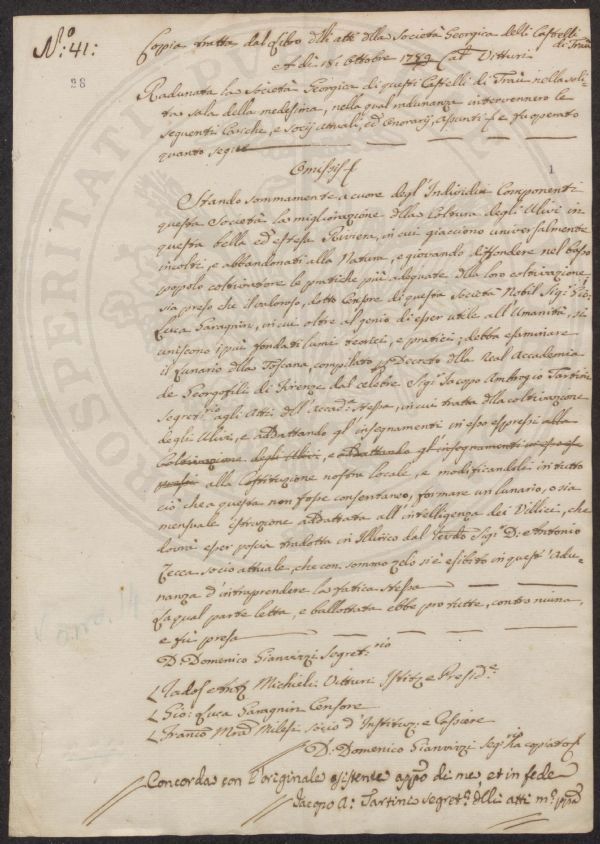 N:º 41:
28
Copia tratta dal Libro delli atti della Società Georgica delli Castelli
di Traù
et di 18: Ottobre 1789 Cal Vitturi
Radunata la Società Georgica di questi Castelli di Traù nella soli-
ta sala della medesima, nella qual radunanza intervennero le
seguenti Cariche, e Socij attuali, ed Onorarij, assunti e fu operato
quanto segue
Omissis
1
Stando sommamente a cuore degl' Individui Componenti
questa Società la migliorazione della Coltura degli Ulivi in
questa bella ed estesa Riviera, in cui giacciono universalmente
incolti, e abbandonati alla Natura, e giovando diffondere nel basso
popolo coltivatore le pratiche più adequate della loro coltivazione,
sia preso che il valoroso, dotto Censore di questa Società Nobil Sigr. Gio:
Luca Garagnin, in cui oltre al genio di esser utile all' Umanità, si
uniscono i più fondati lumi teorici, e pratici; debba esaminare
il Lunario della Toscana compilato per Decreto della Real Accademia
de Georgofili di Firenze dal celebre Sigr. Jacopo Ambrogio Tartini
Segretrio agli Atti dell' Accada. stessa, in cui tratta della coltivazione
degli Ulivi, e addattando gl' insegnamenti in esso espressi alla
Coltivazione degli Ulivi, e addattando gl' insegnamenti in esso es-
pressi alla Costituzione nostra locale, e modificandoli in tutto
ciò che a questa non fosse consentaneo, formare un lunario, o sia
mensuale istruzione addattata all' intelligenza dei Villici, che
dovrà esser poscia tradotta in Illirico dal Revdo Sigr. D: Antonio
Zecca socio attuale, che con sommo zelo si è esibito in quest' adu-
nanza d' intraprendere la fatica stessa
La qual parte letta, e ballottata ebbe pro tutte, contro niuna,
e fù presa
D: Domenico Gianuizzi Segretrio
Michieli Vitturi Istitr e Preside
Gio: Luca Garagnin Censore
Franco Mirad Milesi socio d' Instituzi e Cassiere
D: Domenico Gianuizzi Segrio ha copiato
Concorda con l' originale esistente appo di me, et in fede
Jacopo A: Tartini segreto degli atti mo ppa